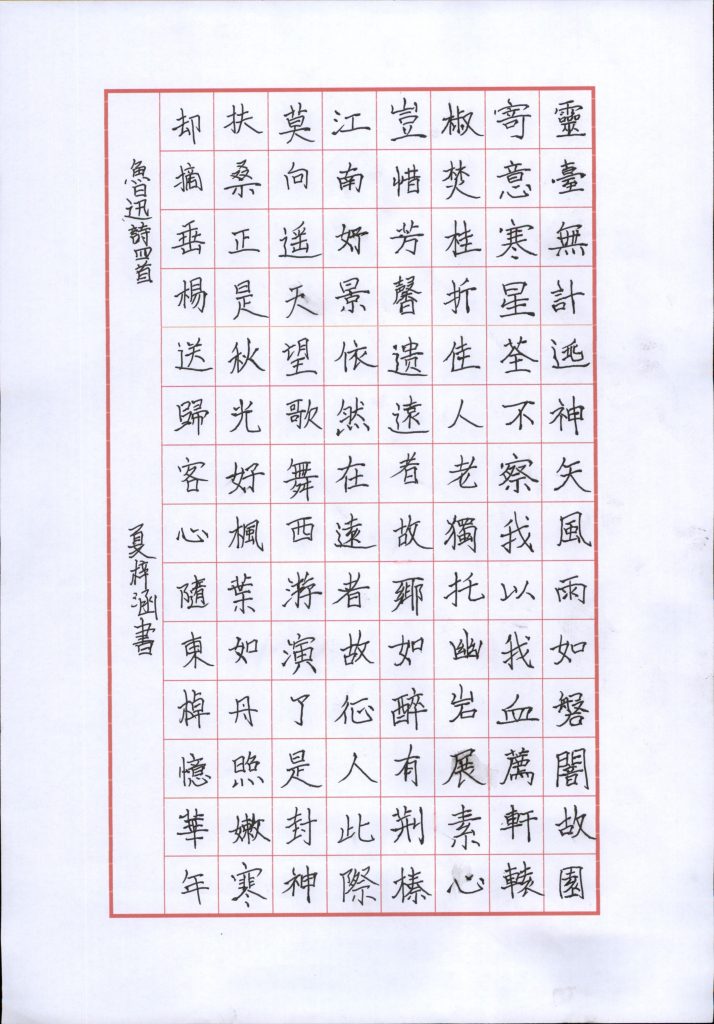 靈臺無計逃神矢風雨如磐闇故園
寄意寒星荃不察我以我血薦軒轅
椒焚桂折佳人老獨托幽岩展素心
豈惜芳馨遺遠者故鄉如醉有荆榛
江南好景依然在遠者故征人此際
莫向遥天望歌舞西游演了是封神
扶桑正是秋光好楓葉如丹照嫩寒
却摘垂楊送歸客心隨東棹憶華年
魯迅詩四首
夏梓涵書